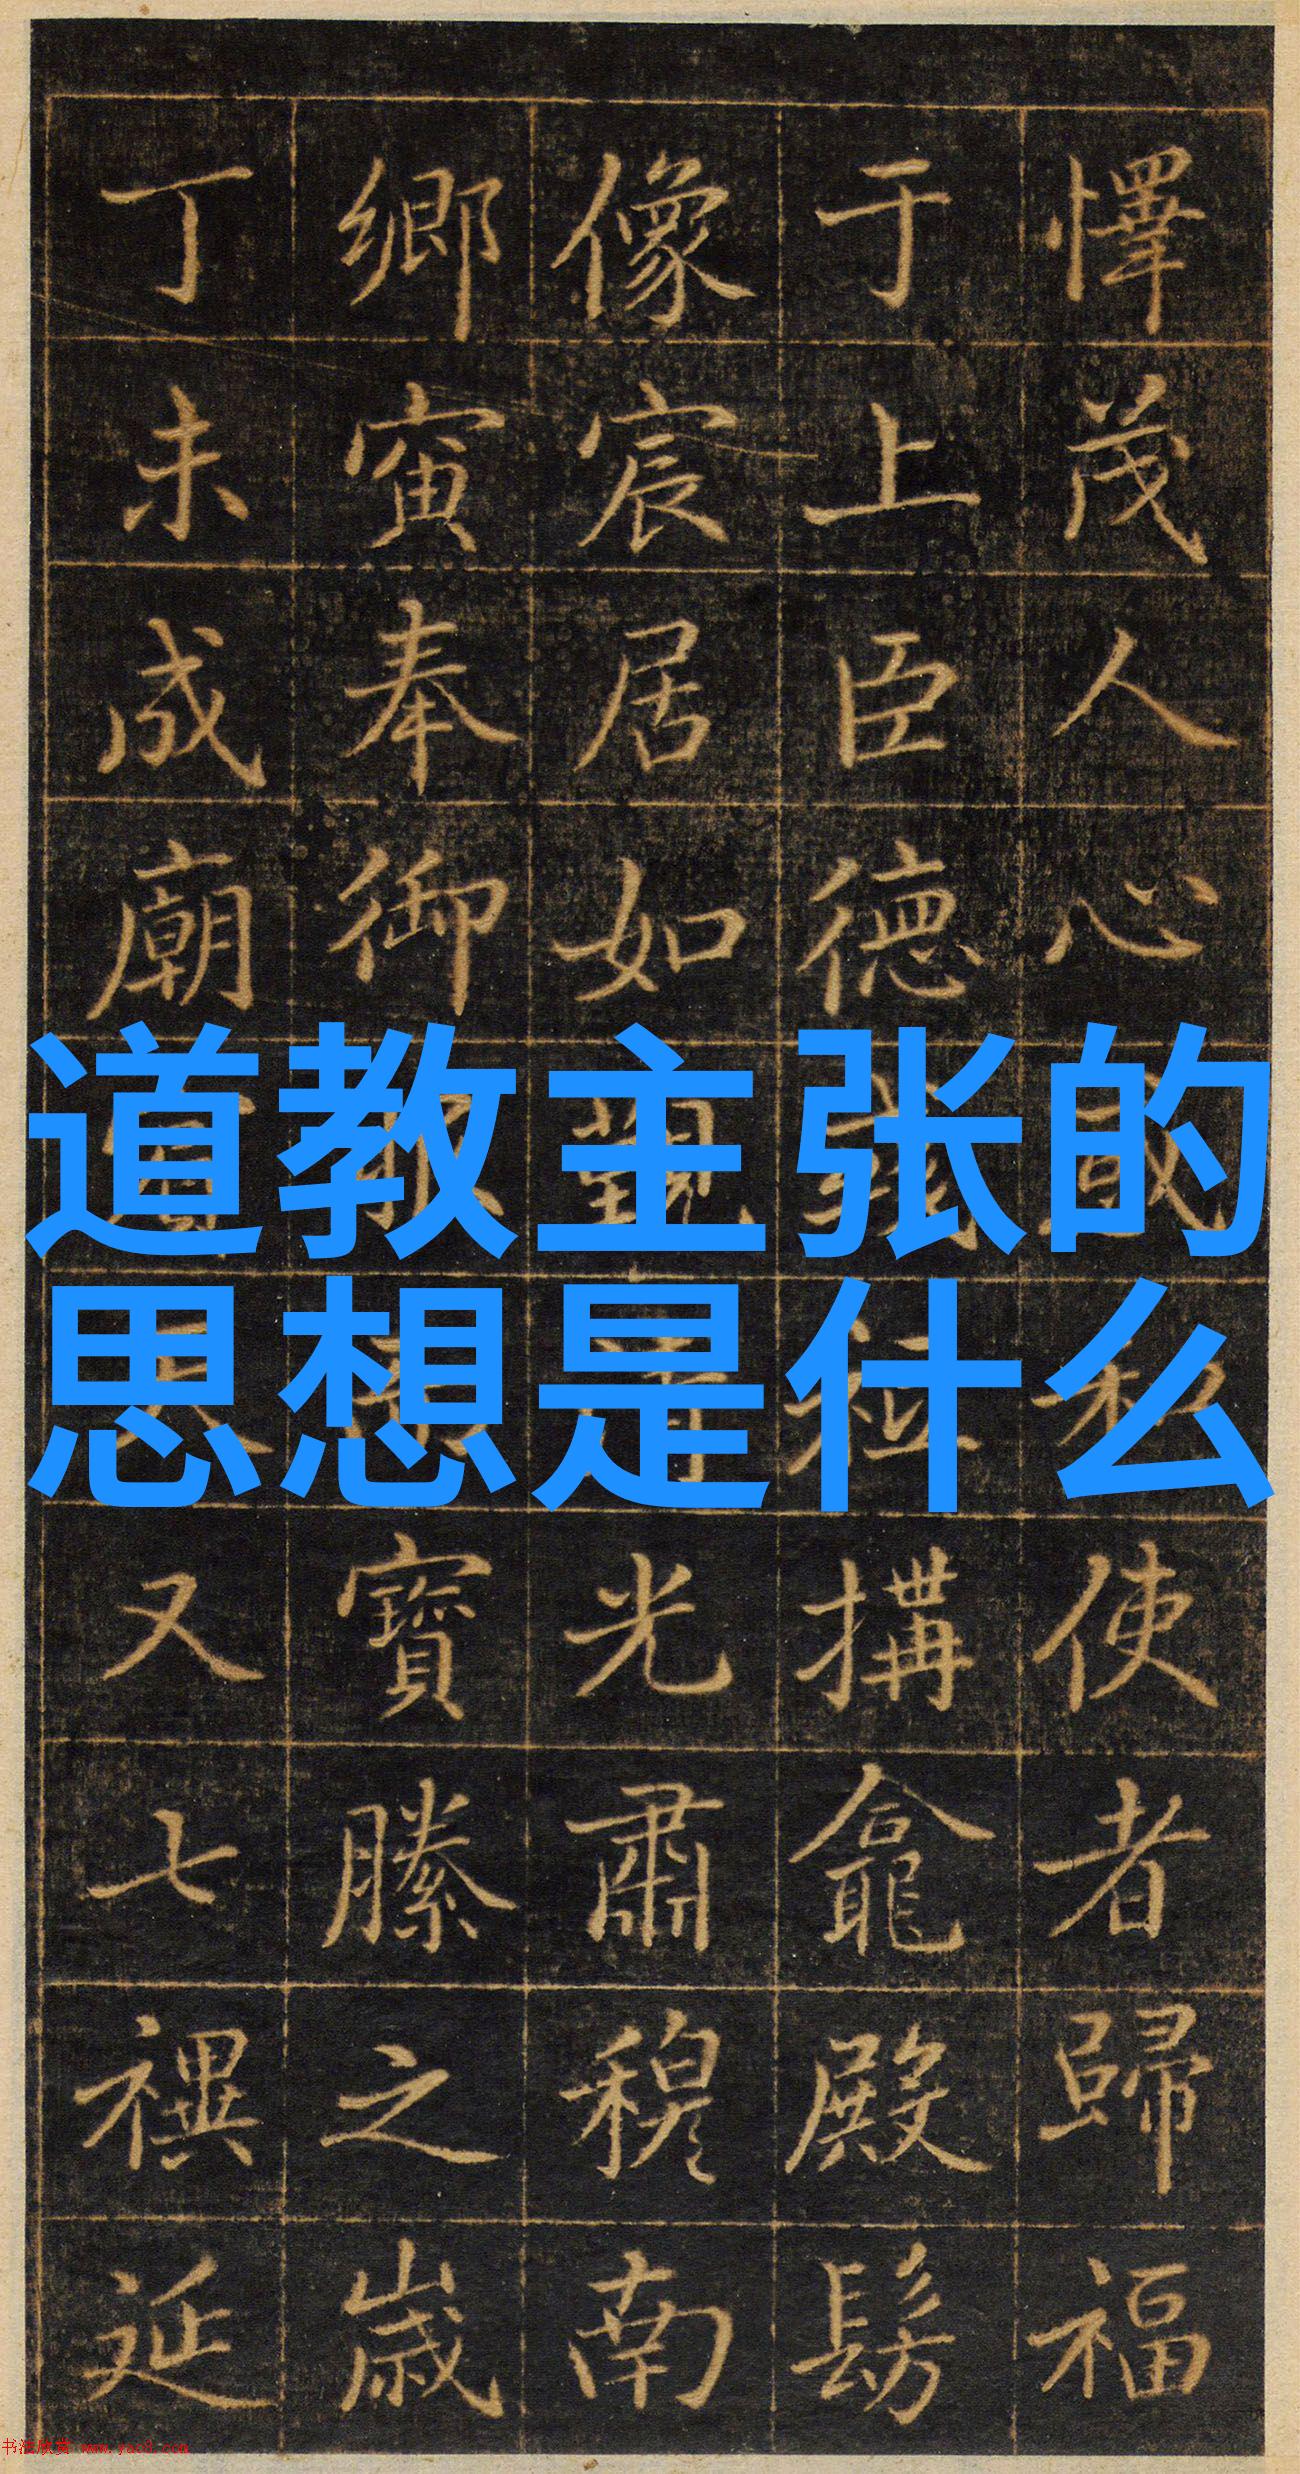 懌茂人心使者歸福
于上臣德搆龕殿髣
像宸居如觀光肅穆南
鄉寅奉御寶縢之歲
丁未成廟又七禩延
道教主张的
思想是什么
书法欣赏 www.yac8.com